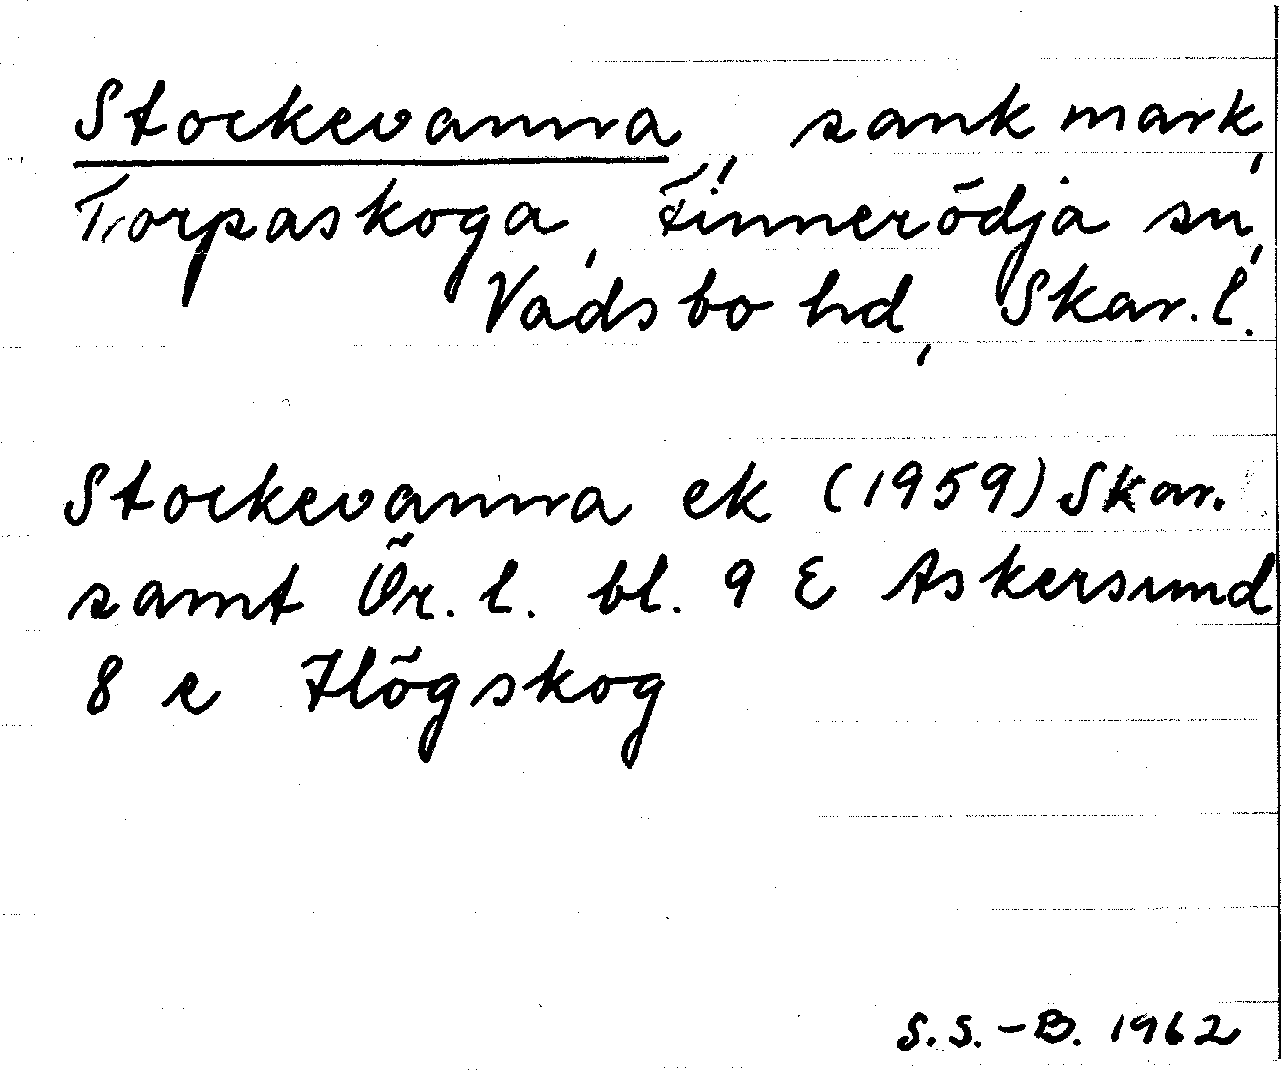 Stockevanna, sank mark,
Torpaskoga, Finnerödja sn,
Vadsbo hd, Skar. l.
Stockevanna ek (1959) Skar.
samt Ör. l. bl. 9 E Askersund
8 e Högskog
S.S.-B. 1962